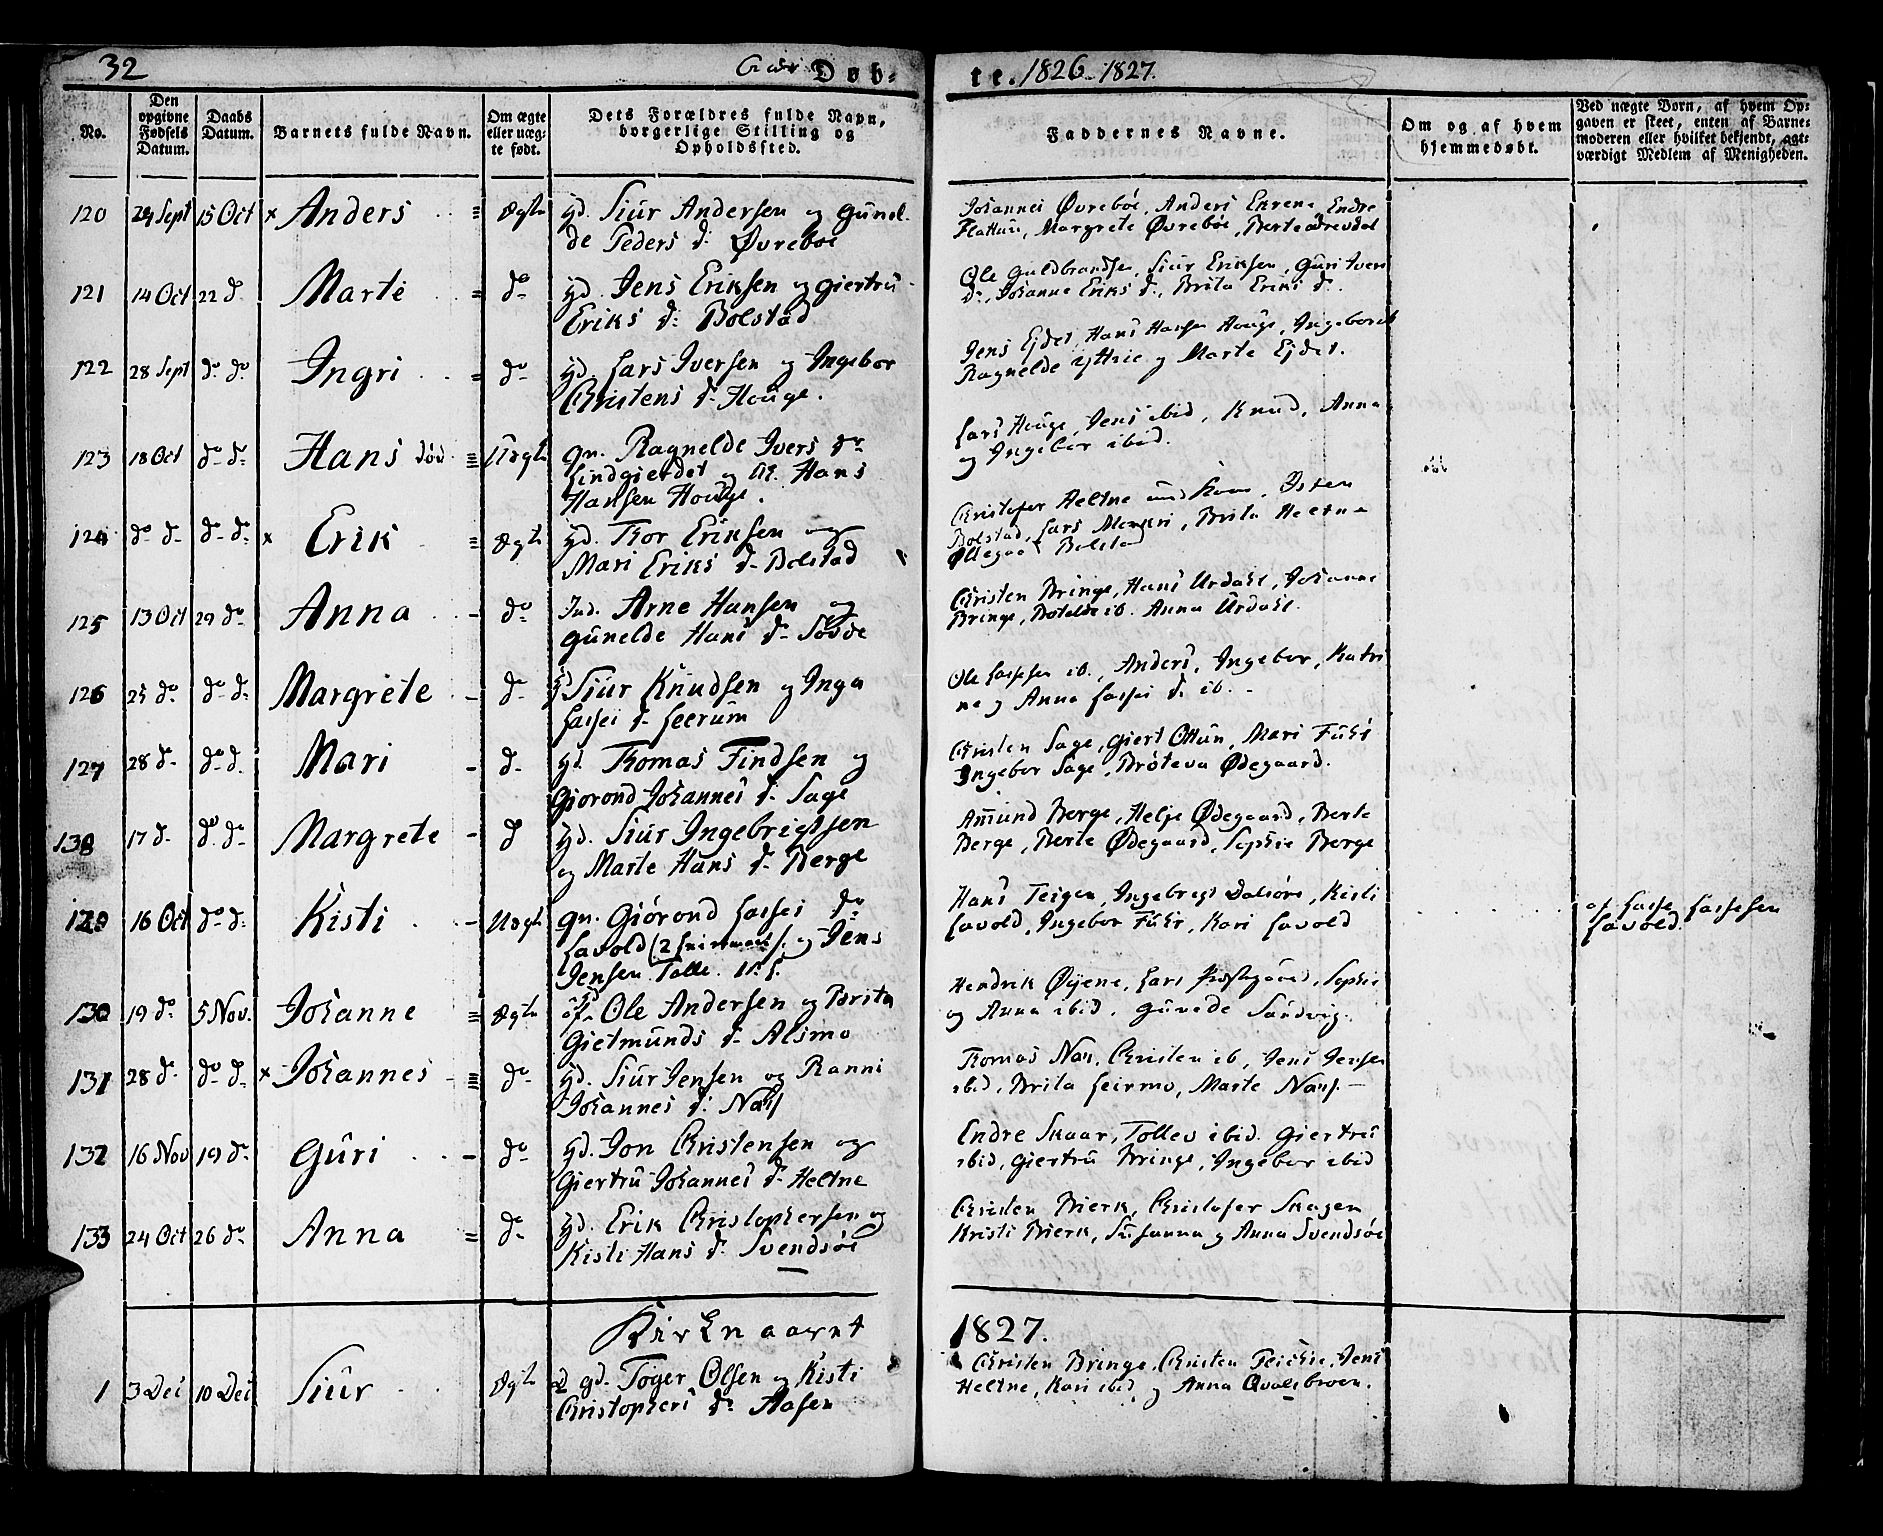 32
Døb-
te. 1826-1827.
No.
Den opgivne Fødsels Datum.
Daabs Datum.
Barnets fulde Navn.
Om ægte eller uægte født.
Dets Forældres fulde Navn, borgerlige Stilling og Opholdssted.
Faddernes Navne.
Om og af hvem hjemmedøbt.
Ved uægte Børn, af hvem Opgaven er skeet, enten af Barnemoderen eller hvilket bekjendt, agtværdigt Medlem af Menigheden.
120 29 Sept 15 Oct x Anders Ægte gd. Siur Andersen og Gunel-
de Peders d. Øvrebøe
Johannes Øvrebøe, Anders Endre
Margrete Øvrebøe, Berte
121 14 Oct 22 d. Marte do gd. Jens Eriksen og Giertru
Eriks d. Bolstad
Ole Guldbrandsen, Siur Eriksen, Guri Ivers
d., Johanne Eriks d., Brita Eriks d.
122 28 Sept do do Ingri do gd. Lars Iversen og Ingebor
Christens d. Houge.
Jens Ejdet, Hans Hansen Houge, Ingeborg
Ragnelde og Marte Ejdet.
123 18 Oct do do Hans død Uægte qn. Ragnelde Ivers do
Lindgierdet og Hans
Hansen Houge.
Lars Houge, Jens ibid, Knud, Anna
og Ingebor ibid.
124 do do do do x Erik Ægte gd. Thor Eriksen og
Mari Eriks d. Bolstad
Christofer Heltne
Bolstad, Lars Brita Heltne
Bolstad
125 13 Oct 29 do Anna do Ind. Arne Hansen og
Gunelde Hans d.
Christen Bringe, Hans Urdahl, Johanne
Bringe, Botelde ib. Anna Urdahl.
126 25 do do do Margrete do gd Siur Knudsen og Inga
Lasses d. Leerum
Ole Lassesen ib., Anders, Ingebor, Katri
ne og Anna Lasses d. ib.
127 28 d. do d. Mari d. gd. Thomas Findsen og
Giorond Johannes d. Sage
Christen Sage, Giert Ottun, Mari Fuhr
Ingebor Sage, Ødegaard.
138 17 d. do do Margrete d gd. Siur Ingebrigtsen
og Marte Hans d. Berge
Amund Berge, Helje Ødegaard, Berte
Berge, Berte Ødegaard, Sophie Berge
129 16 Oct do d. Kisti Uægte qn. Giørond Lasses do
Lavold (2 og Jens
Jensen Tolle.
Hans Teigen, Ingebrigt Dalsøre, Kisti
Lavold, Ingebor Fuhr, Kari Lavold
af Lasse Lassesen
Lavold.
130 19 do 5 Nov. Johanne Ægte Ole Andersen og Brita
Gietmunds d. Alsmo
Hendrik Øyene, Lars Præstegaard, Sophie
og Anna ibid. Gunede Sandvig.
131 28 d. do d. x Johannes do gd. Siur Jensen og Ranni
Johannes d.
Thomas Christen ib, Jens Jensen
ibid, Brita Leirmo, Marte
132 16 Nov 19 do Guri do gd. Jon Christensen og
Giertru Johannes d. Heltne
Endre Skaar, Tollev ibid. Giertru
ibid, Giertru Bringe, Ingebor ibid
133 24 Oct 26 do Anna do gd. Erik Christophersen og
Kisti Hans d. Svendsøe
Christen Bierk, Christofer Skagen
Kristi Bierk, Susanna og Anna Svendsøe
Kirkeaaret
1827.
1 3 Dec 10 Dec Siur Ægte gd. Tøger Olsen og Kisti
Christophers d. Aasen
Christen Bringe, Christen Jens
Heltne, Kari ibid og Anna Qvalebroen.